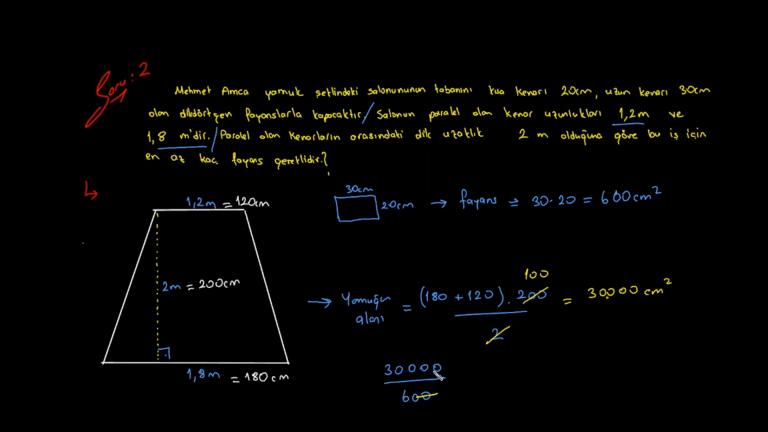 Soru: 2
Mehmet Amca yamuk şeklindeki salonununun tabanını kısa kenarı 20cm, uzun kenarı 30cm
olan dikdörtgen fayanslarla kapacaktır / Salonun paralel olan kenar uzunlukları 1,2m ve
1,8 m'dir. / Paralel olan kenarların arasındaki dik uzaklık 2 m olduğuna göre bu iş için
en az kaç fayans gereklidir?
30cm
1,2m = 120cm
20cm → fayans = 30.20 = 600cm²
2m = 200cm
100
→ Yamuğun alanı = (180 + 120) . 200 = 30.000 cm²
2
30000
1,8m = 180cm
600